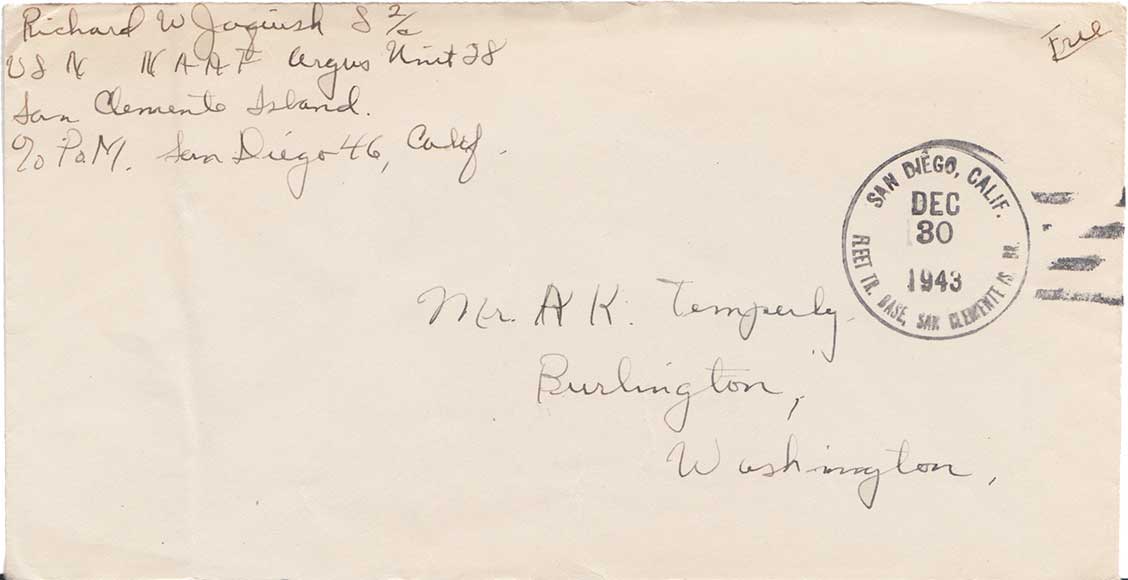 Richard W Jaquish S 2/c
USN NAAF Argus Unit 28
San Clemente Island.
c/o P.M. San Diego 46, Calif.
Free
SAN DIEGO, CALIF.
DEC
30
1943
FLEET TR. BASE, SAN CLEMENTE IS. BR.
Mr. A K. Temperly.
Burlington,
Washington,